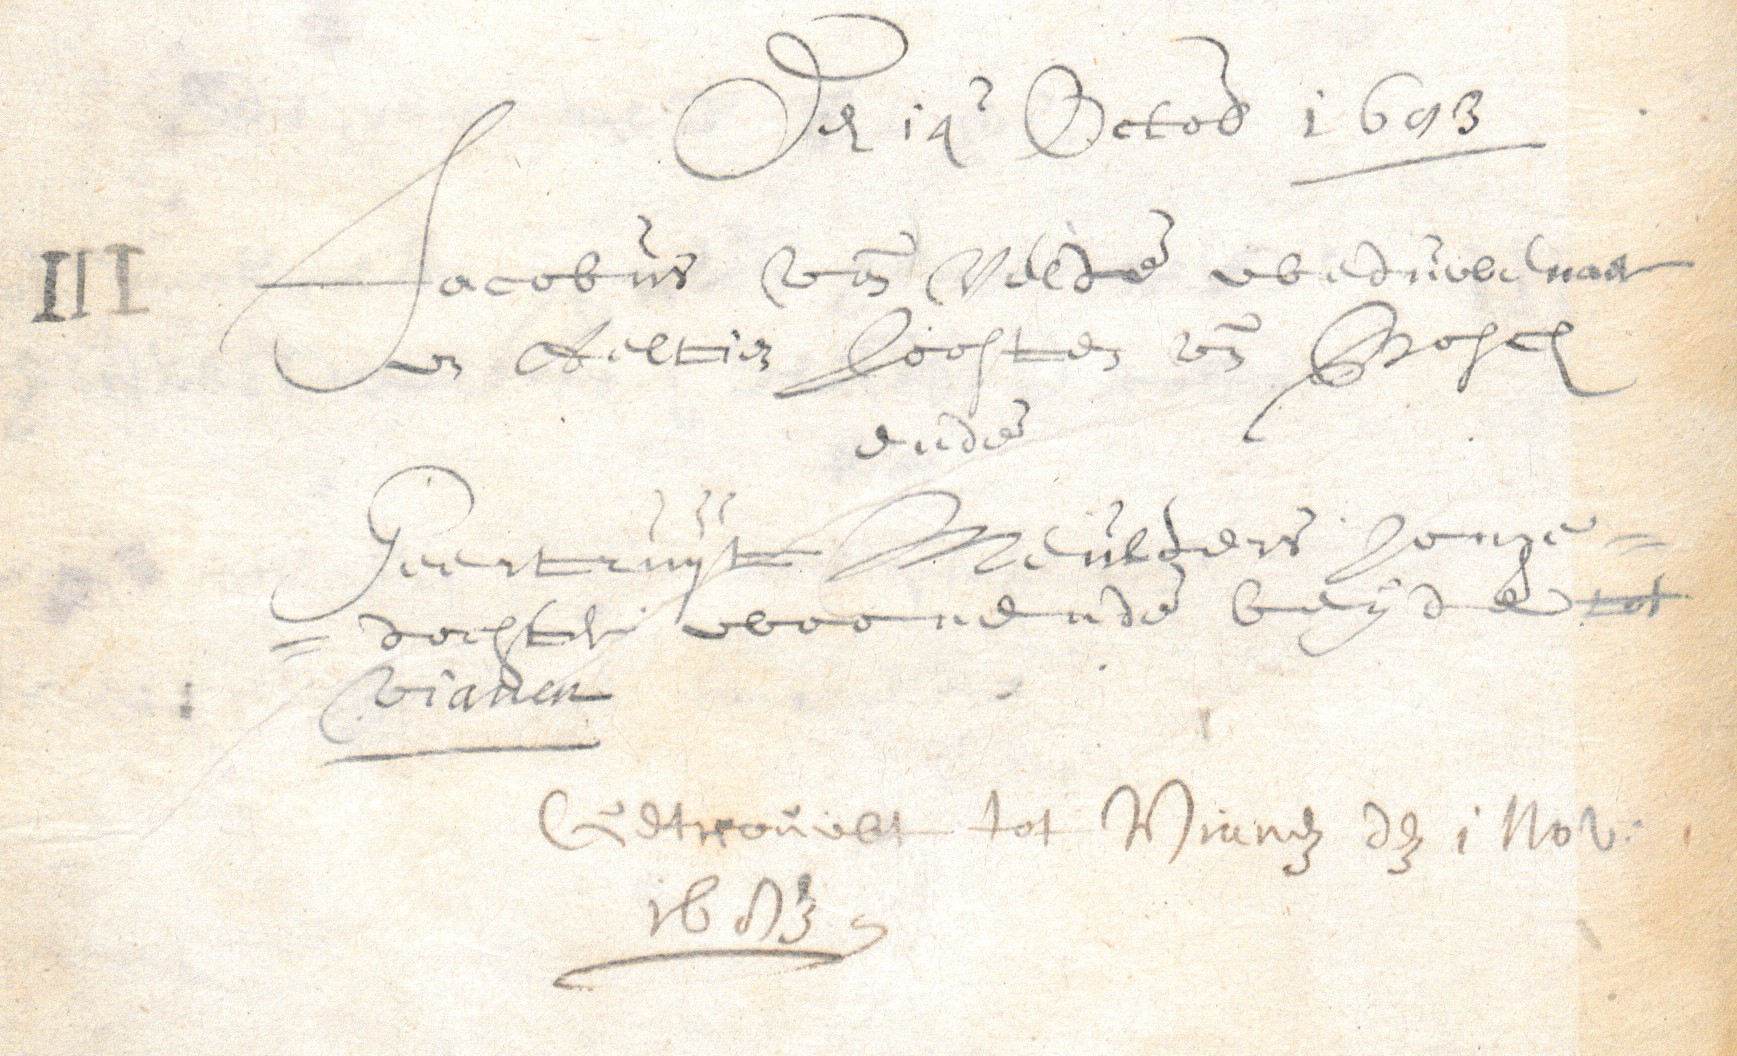 Den 14e Octob 1693
III Jacobus van Velde weduwenaar
van Aeltien Joosten van Bosch
ende
Geertruijt Meulders Jonge=
=dochter woonende beyde tot
vianen
Getrouwt tot Vianen den 1 Nov:
1693